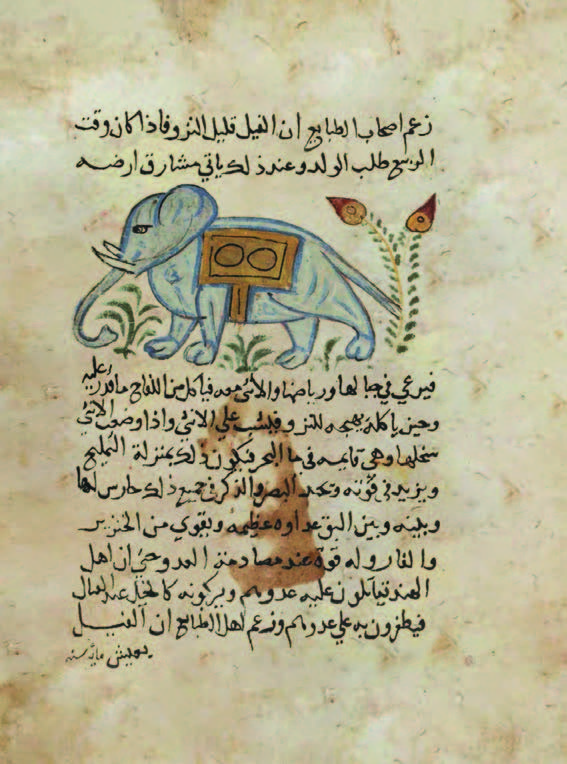 زعم اصحاب الطبايع ان الفيل قليل النزو فاذا كان وقت
الربيع طلب الولد وعند ذلك ياتي مشارق ارضه
فيرعي في جبالها ورياضها والانثى معه فياكل من اللفاح ما قدر عليه
وحين ياكله يهيجه للنزو فيثب علي الانثي واذا وضعت الانثي
سخلها وهي قايمه في ما البحر فيكون ذلك بمنزلة التمليح
ويزيد في قوته وتحد البصر والذكر في جميع ذلك حارس لها
وبينه وبين البق عداوه عظيمه ويقوي من الخنزير
والفار وله قوة عند مصادمة العدو حتي ان اهل
الهند يقاتلون عليه عدوهم ويركبونه كالخيل عند القتال
فيظفرون به علي عدوهم وزعم اهل الطبايع ان الفيل
يعيش ماية سنه